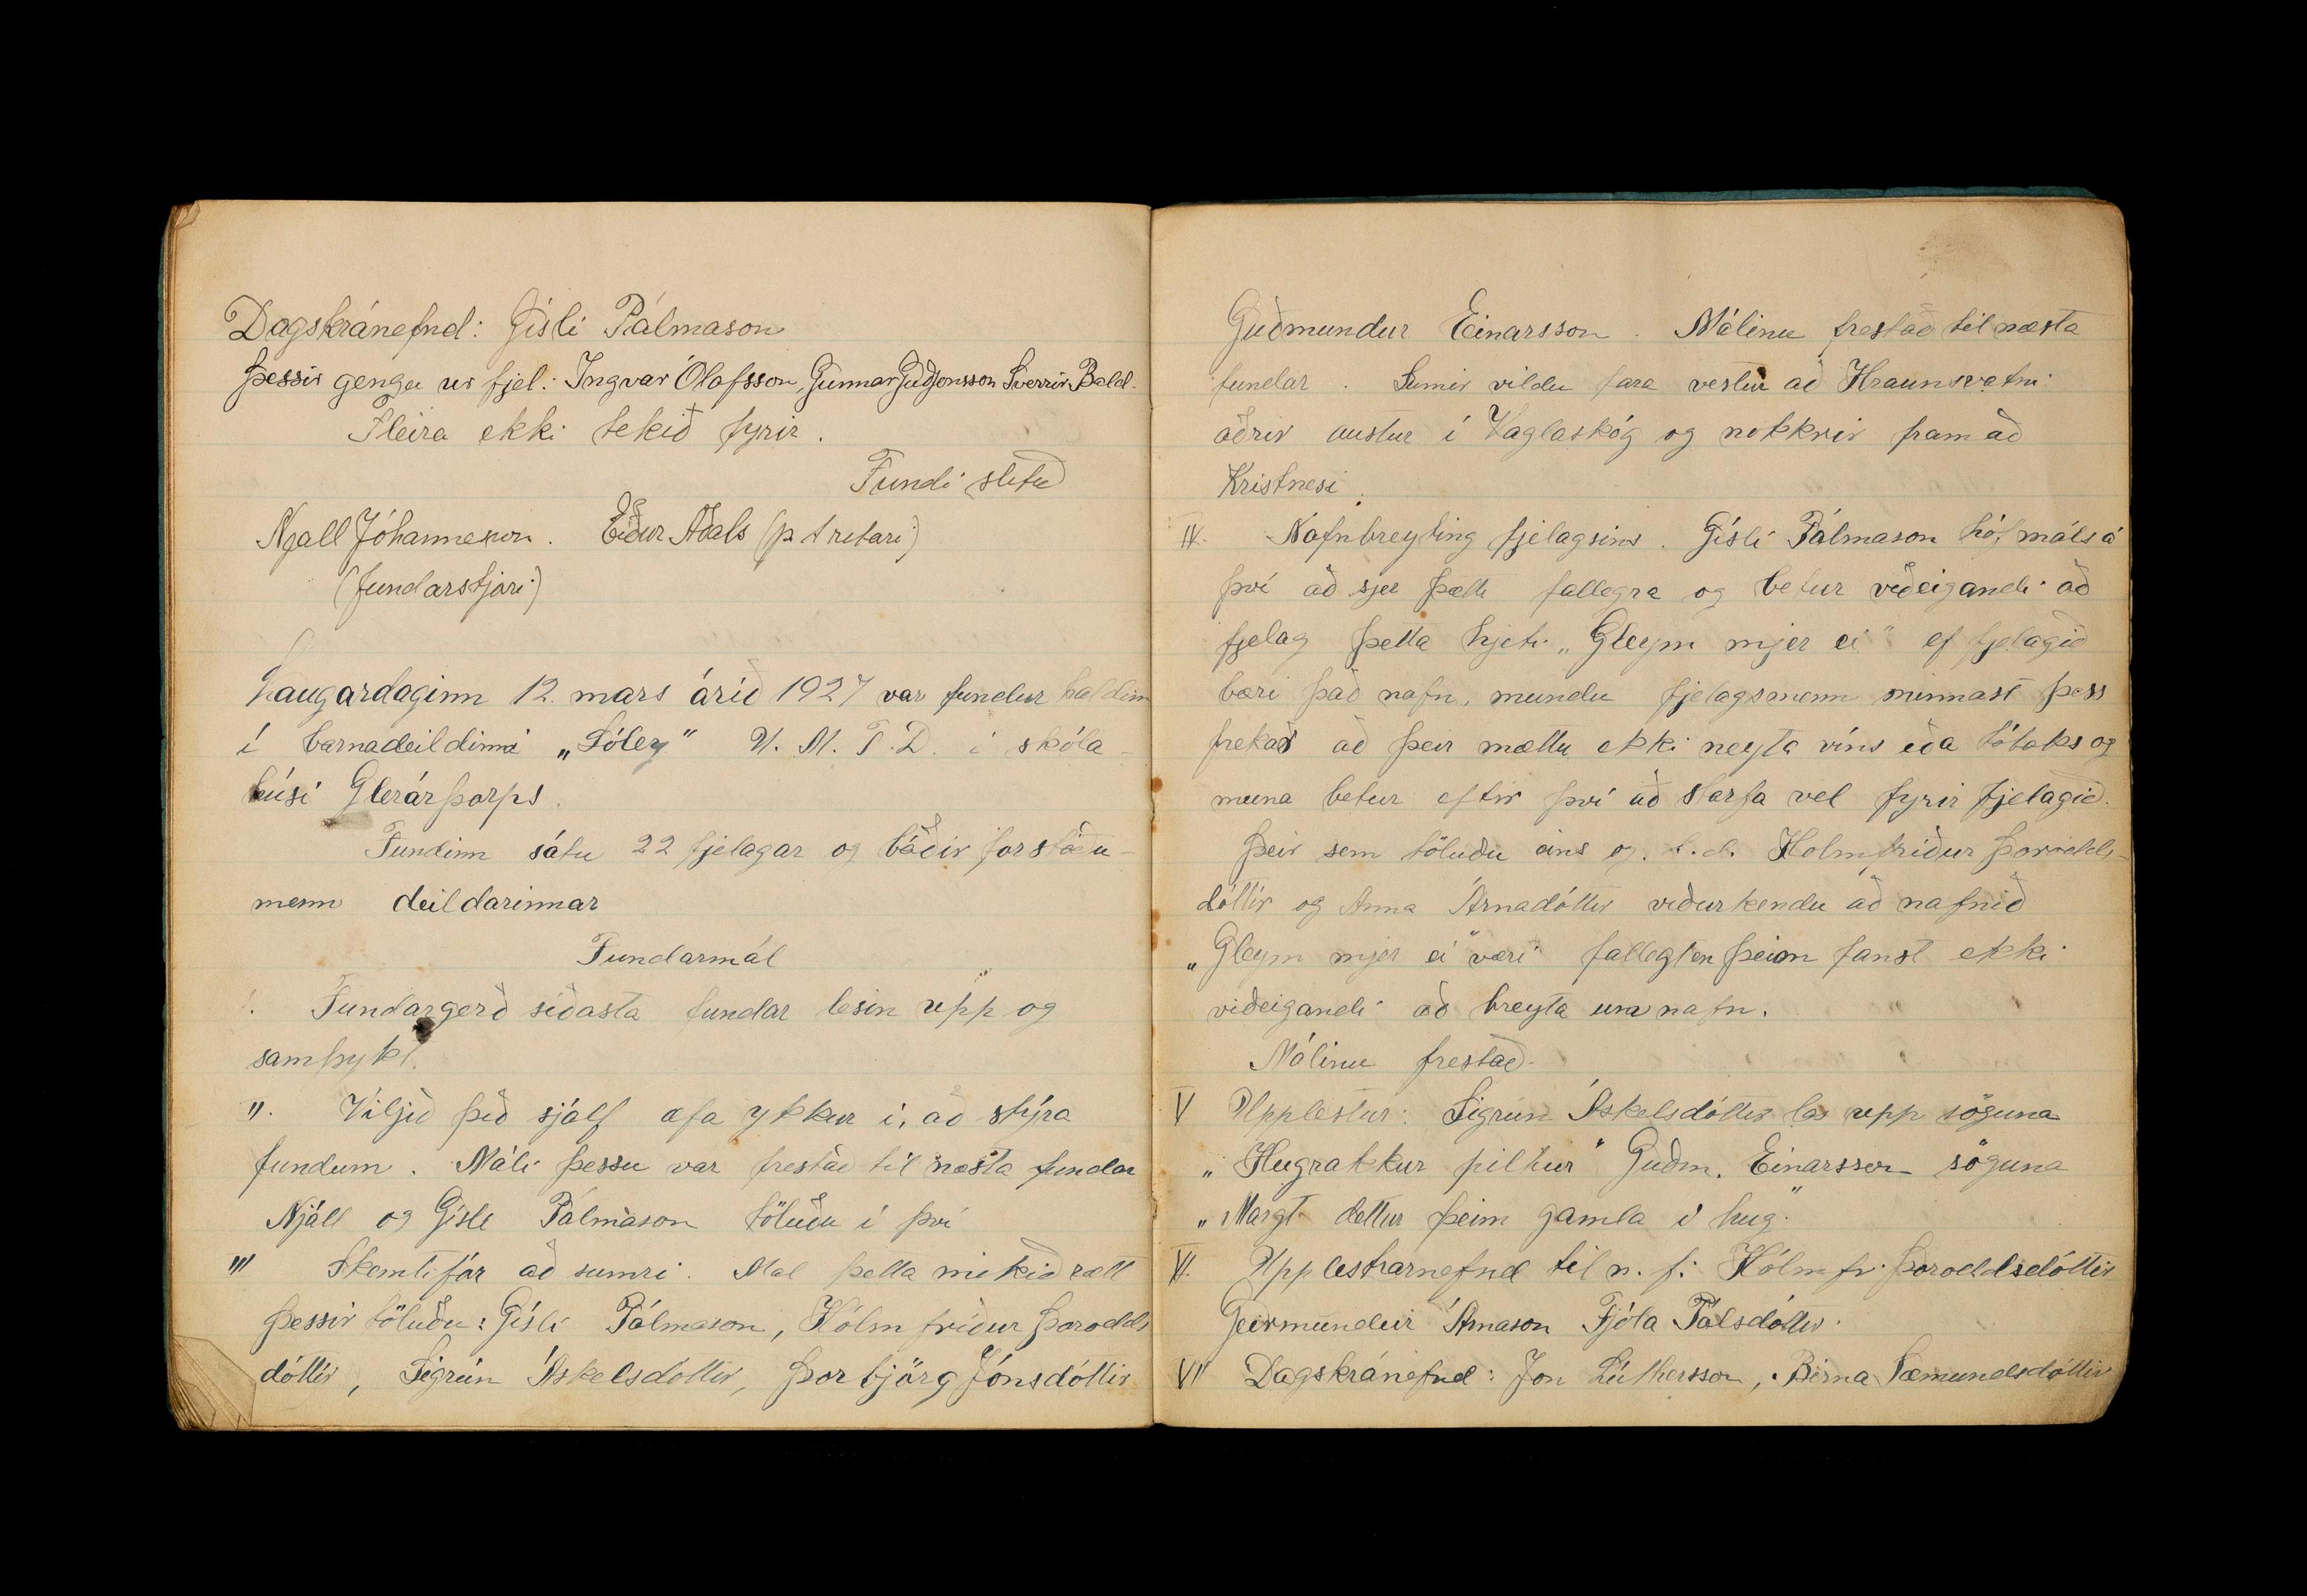 Dagskránefnd: Gísli Pálmason
Þessir gengu úr fjel.: Ingvar Ólafsson, Gunnar Guðjonsson Sverrir Bald-
Fleira ekki tekið fyrir.
Fundi slitið
Njall Jóhannesson. Eiður Aðals (p t ritari)
(fundarstjóri)
Laugardaginn 12. mars árið 1927 var fundur haldinn
í barnadeildinni „Sóley" U. M. F. D. í skóla-
húsi Glerárþorps.
Fundinn sátu 22 fjelagar og báðir forstöðu-
menn deildarinnar
Fundarmál
I. Fundargerð síðasta fundar lesin upp og
samþykt.
II. Viljið þið sjálf æfa ykkur í, að stýra
fundum. Máli þessu var frestað til næsta fundar
Njáll og Gísli Pálmason töluðu í því
III Skemtiför að sumri. Mál þetta mikið rætt
þessir töluðu: Gísli Pálmason, Hólmfríður Þorodds
dóttir, Sigrún Áskelsdóttir, Þorbjörg Jónsdóttir
Guðmundur Einarsson. Málinu frestað til næsta
fundar. Sumir vildu fara vestur að Hraunsvatni
aðrir austur í Vaglaskóg og nokkrir fram að
Kristnesi.
IV. Nafnbreyting fjelagsins. Gísli Pálmason hóf máls á
því að sjer þætti fallegra og betur viðeigandi að
fjelag þetta hjeti „Gleym mjer ei" ef fjelagið
bæri það nafn, mundu fjelagsmenn minnast þess
frekar að þeir mættu ekki neyta víns eða tóbaks og
muna betur eftir því að starfa vel fyrir fjelagið.
Þeir sem töluðu eins og t.d. Holmfríður Þorodds-
dóttir og Anna Árnadóttir viðurkendu að nafnið
„Gleym mjer ei" væri fallegt en þeim fanst ekki
viðeigandi að breyta um nafn.
Málinu frestað.
V Upplestur: Sigrún Áskelsdóttir las upp söguna
„Hugrakkur piltur" Guðm. Einarsson söguna
„Margt dettur þeim gamla í hug".
VI. Upplestrarnefnd til n. f: Hólmfr. Þoroddsdóttir
Geirmundur Árnason Fjóla Pálsdóttir.
VII Dagskránefnd: Jon Lúthersson, Birna Sæmundsdóttir